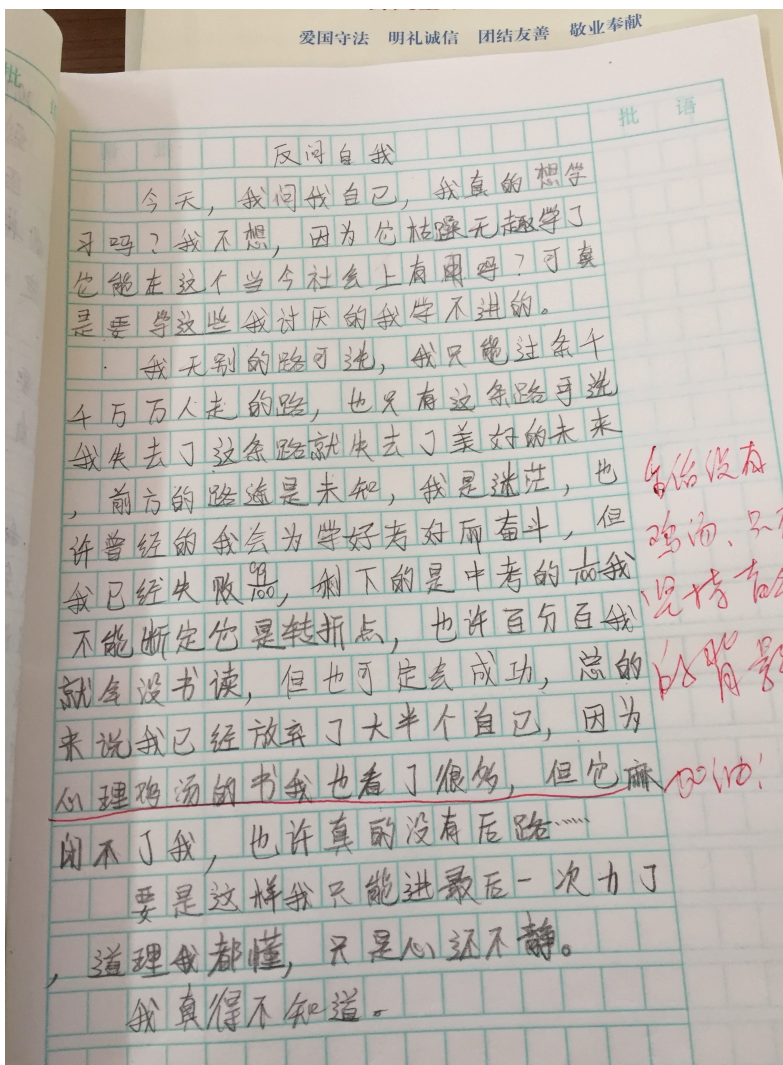 爱国守法 明礼诚信 团结友善 敬业奉献
批 语
批
反问自我
今天，我问我自己，我真的想学
习吗？我不想，因为它枯躁无趣学了
它能在这个当今社会上有用吗？可真
是要学这些我讨厌的我学不进的。
我无别的路可选，我只能过条千
千万万人走的路，也只有这条路可选
我失去了这条路就失去了美好的未来
，前方的路途是未知，我是迷茫，也
许曾经的我会为学好考好而奋斗，但
我已经失败99/100，剩下的是中考的1/100我
不能断定它是转折点，也许百分百我
就会没书读，但也可定会成功，总的
来说我已经放弃了大半个自己，因为
心理鸡汤的书我也看了很多，但它麻
闭不了我，也许真的没有后路……
要是这样我只能进最后一次力了
，道理我都懂，只是心还不静。
我真得不知道。
生活没有
鸡汤，只
坚持
的背影
加油！